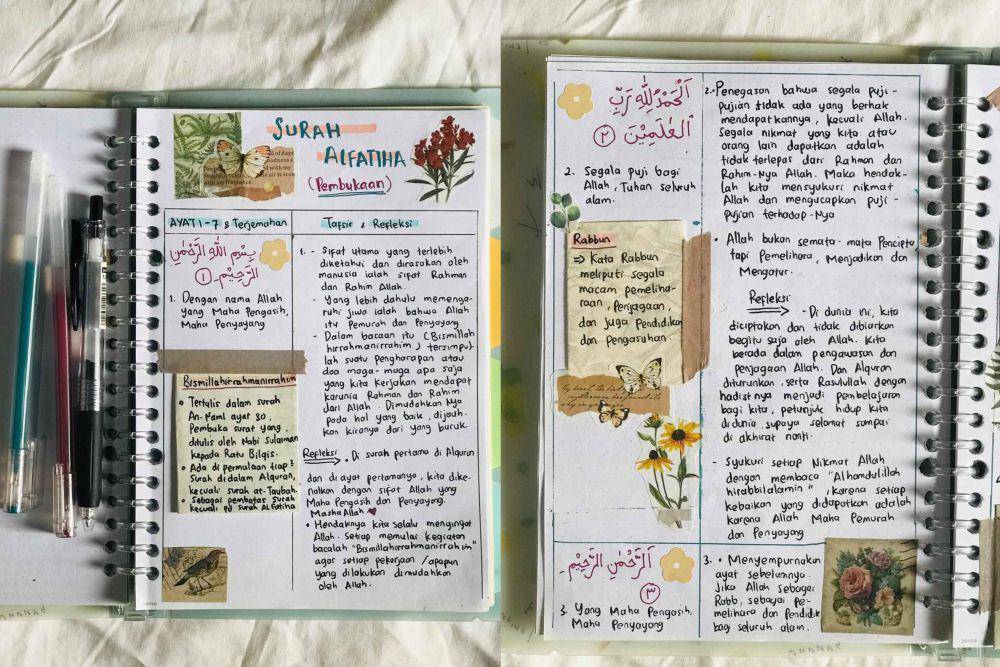 SURAH
ALFATIHA
(Pembukaan)
AYAT 1-7 & Terjemahan
بِسْمِ اللهِ الرَّحْمٰنِ
الرَّحِيْمِ ①
1. Dengan nama Allah
yang Maha Pengasih,
Maha Penyayang
Bismillahirrahmanirrahim
• Tertulis dalam surah
An-Naml ayat 30.
Pembuka surat yang
ditulis oleh Nabi Sulaiman
kepada Ratu Bilqis.
• Ada di permulaan tiap2
Surah didalam Alquran,
kecuali surah at-Taubah.
• Sebagai pembatas surah
kecuali pd surah AlFatiha
Tafsir & Refleksi
1. - Sifat utama yang terlebih
diketahui dan dirasakan oleh
manusia ialah sifat Rahman
dan Rahim Allah.
- Yang lebih dahulu memenga-
ruhi jiwa ialah bahwa Allah
itu Pemurah dan Penyayang
- Dalam bacaan itu (Bismillah
hirrahmanirrahim) tersimpu
lah suatu pengharapan atau
doa moga-moga apa saja
yang kita kerjakan mendapat
karunia Rahman dan Rahim
dari Allah. Dimudahkan Nya
pada hal yang baik, dijauh-
kan kiranya dari yang buruk.
Refleksi
• Di surah pertama di Alquran
dan di ayat pertamanya, kita dike-
nalkan dengan sifat Allah yang
Maha Pengasih dan Penyayang.
Masha Allah ♥
• Hendaknya kita selalu mengingat
Allah. Setiap memulai kegiatan
bacalah "Bismillahirrahmanirrahim"
agar setiap pekerjaan /apapun
yang dilakukan dimudahkan
oleh Allah.
اَلْحَمْدُ لِلّٰهِ رَبِّ
الْعٰلَمِيْنَ ②
2. Segala puji bagi
Allah, Tuhan seluruh
alam.
Rabbun
⇒ Kata Rabbun
meliputi segala
macam pemeliha-
raan, Penjagaan,
dan juga Pendidikan
dan pengasuhan.
اَلرَّحْمٰنِ الرَّحِيْمِ
③
3. Yang Maha Pengasih,
Maha Penyayang
2. Penegasan bahwa segala puji-
pujian tidak ada yang berhak
mendapatkannya, kecuali Allah.
Segala nikmat yang kita atau
orang lain dapatkan adalah
tidak terlepas dari Rahman dan
Rahim-Nya Allah. Maka hendak-
lah kita mensyukuri nikmat
Allah dan mengucapkan puji-
pujian terhadap-Nya
• Allah bukan semata-mata Pencipta
tapi Pemelihara, Menjadikan dan
Mengatur.
Refleksi
- Di dunia ini, kita
diciptakan dan tidak dibiarkan
begitu saja oleh Allah. Kita
berada dalam pengawasan dan
penjagaan Allah. Dan Alquran
diturunkan, serta Rasulullah dengan
hadistnya menjadi pembelajaran
bagi kita, petunjuk hidup kita
didunia, supaya selamat sampai
di akhirat nanti.
- Syukuri setiap Nikmat Allah
dengan membaca "Alhamdulillah
hirabbilalamin", karena setiap
kebaikan yang didapatkan adalah
karena Allah Maha Pemurah
dan Penyayang
3. • Menyempurnakan
ayat sebelumnya.
Jika Allah sebagai
Rabb, sebagai pe-
melihara dan Pendidik
bagi seluruh alam.